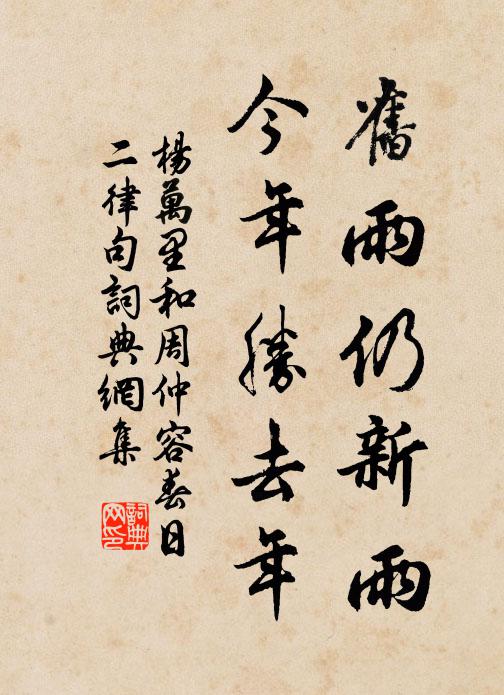 舊雨仍新雨
今年勝去年
楊萬里和周仲容春日
二律句詞典網集
詞典
网印